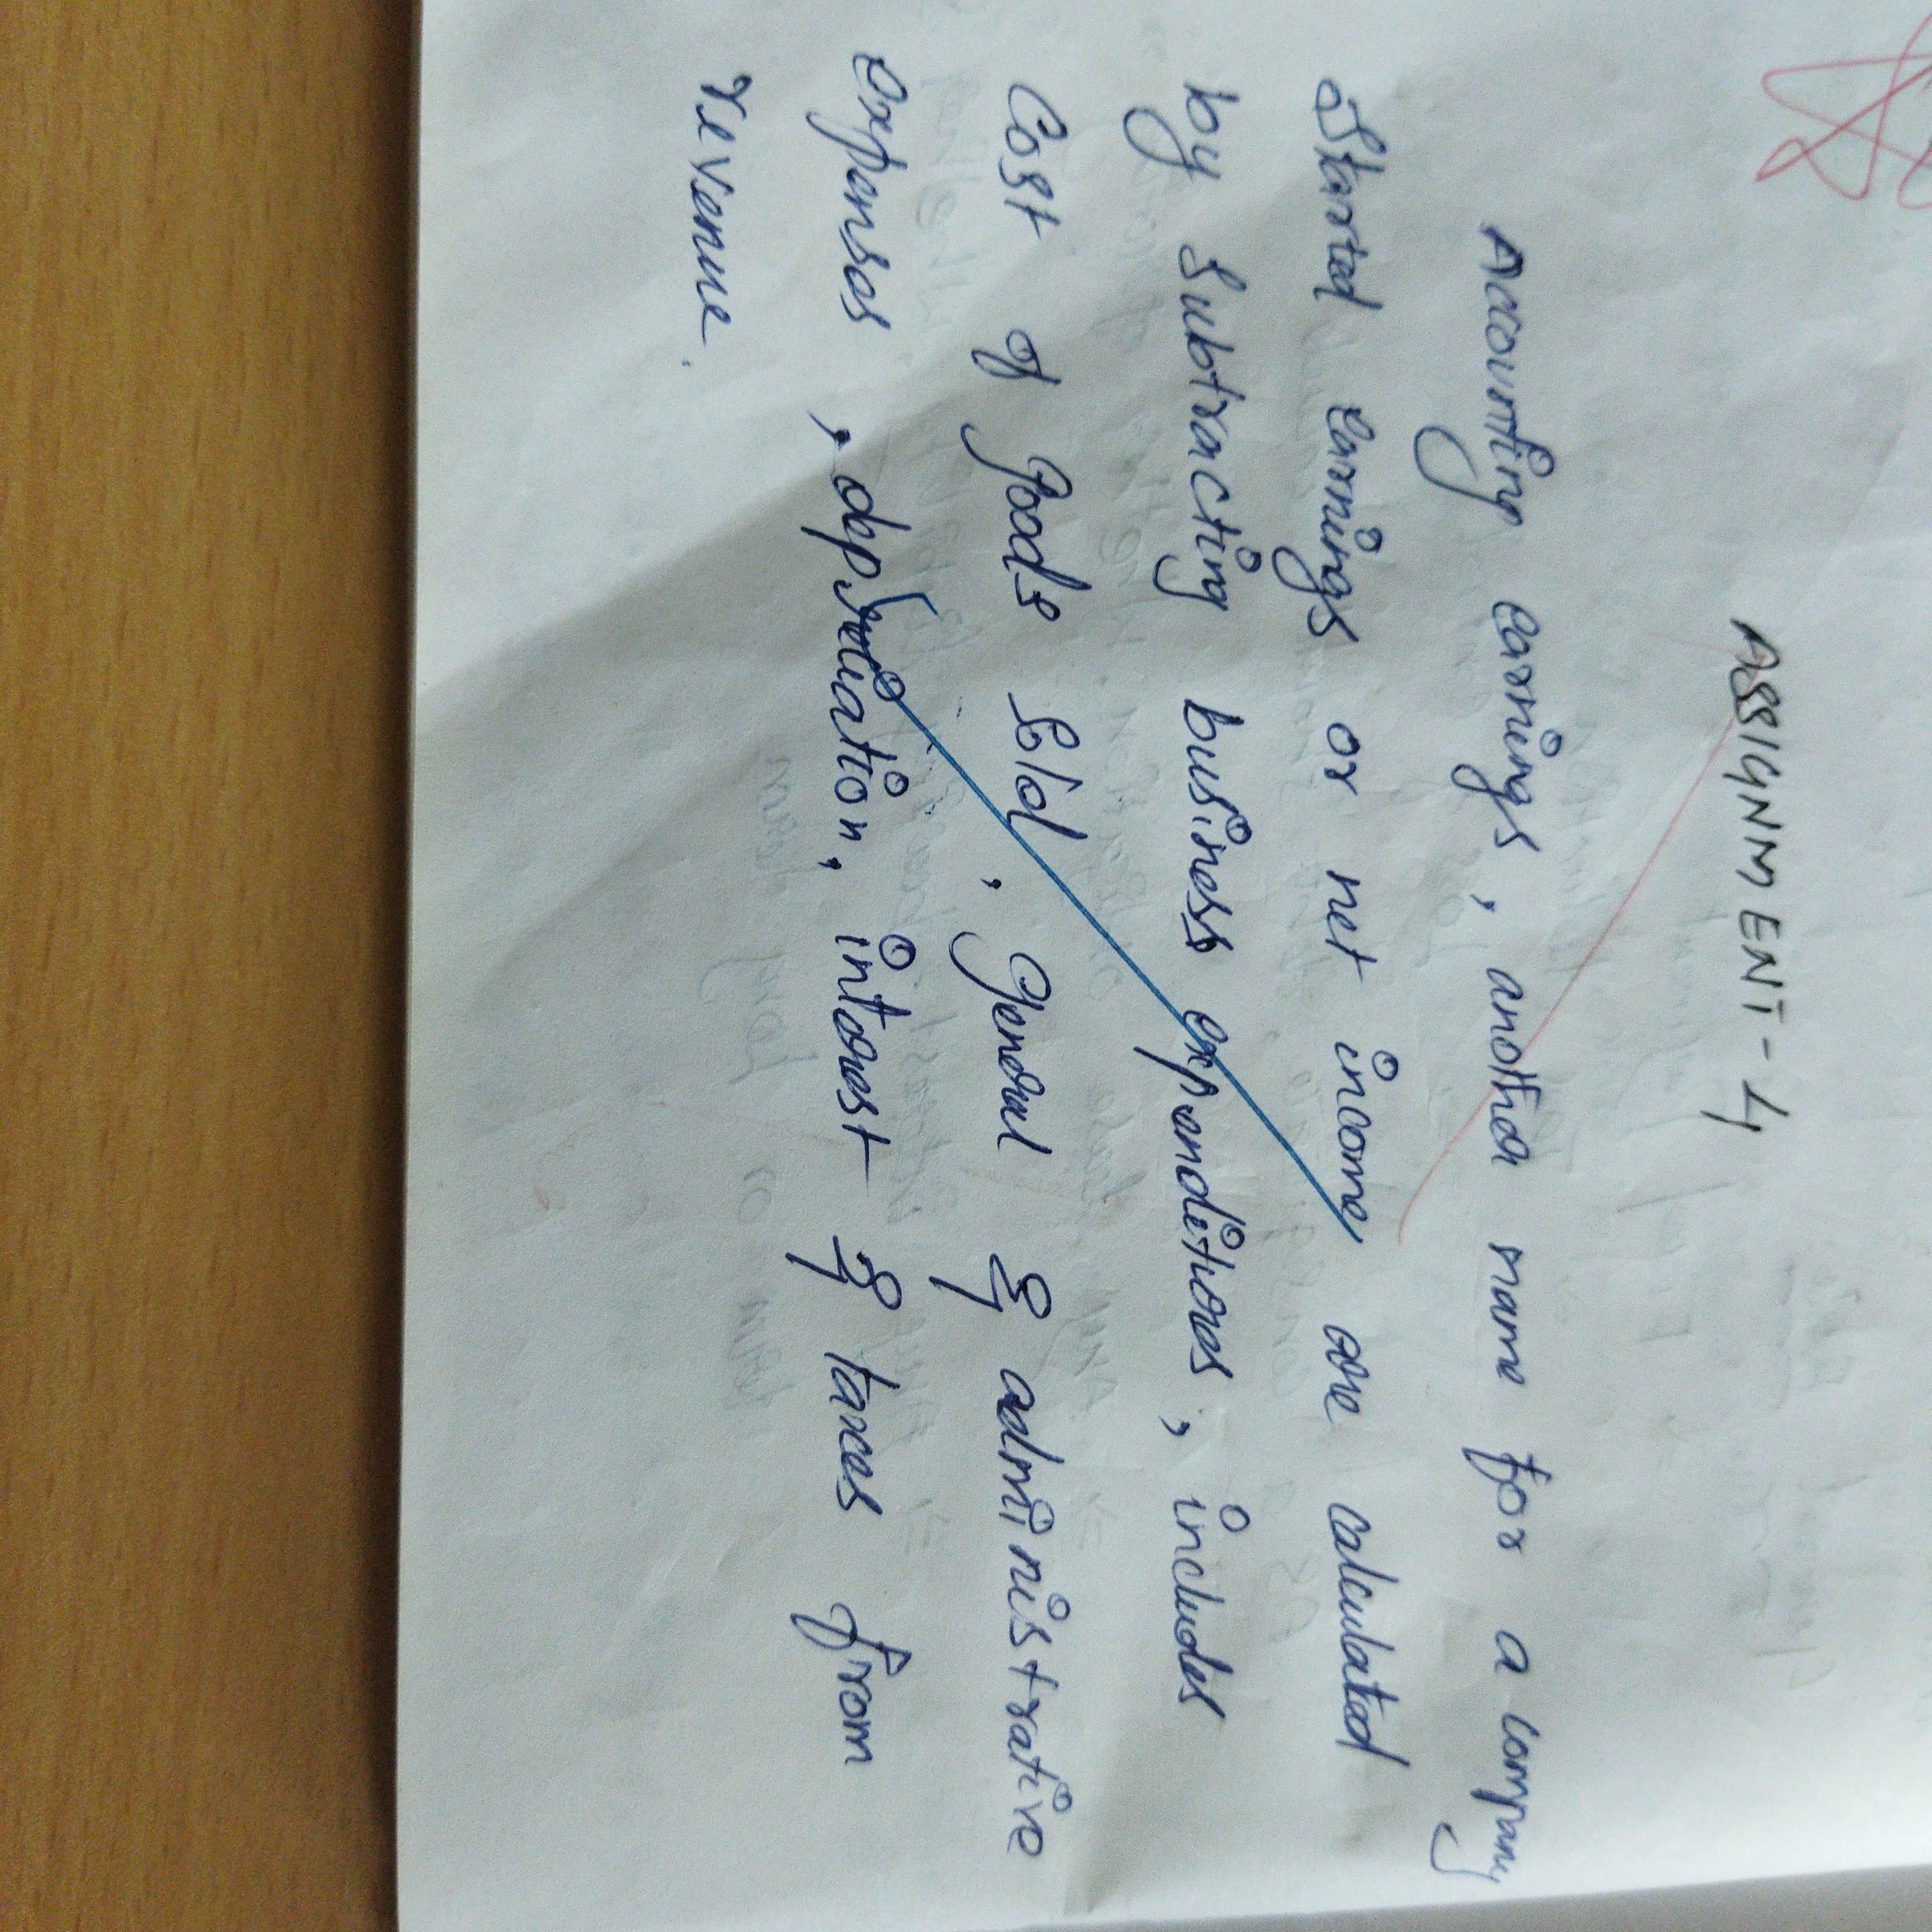 ASSIGNMENT-4
Accounting earnings, another name for a company
Started earnings or net income are calculated
by subtracting business expenditures, includes
Cost of goods sold, general & administrative
expenses, depreciation, interest & taxes from
revenue.